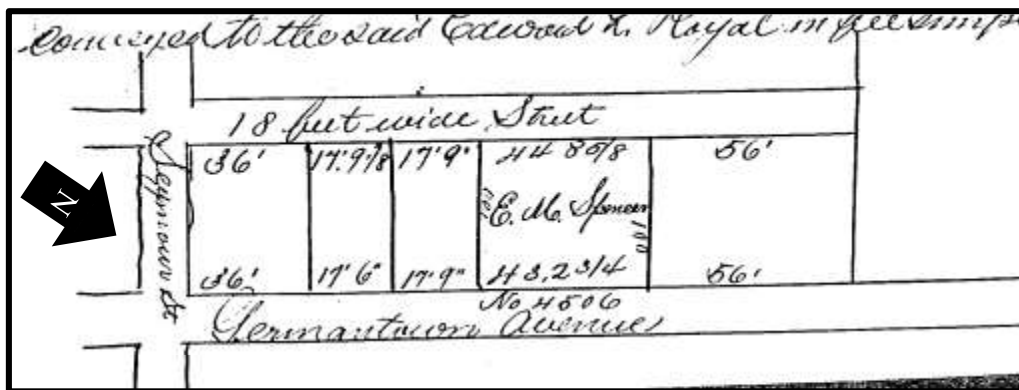 conveyed to the said Edward L. Royal in fee simple
18 feet wide Street
36' 17'.9⅞ 17'9" 44 8 5/8 56'
N
Seymour St
E. M. Spencer
100
36' 17'6" 17'9" 43,2 3/4 56'
No 4506
Germantown Avenue